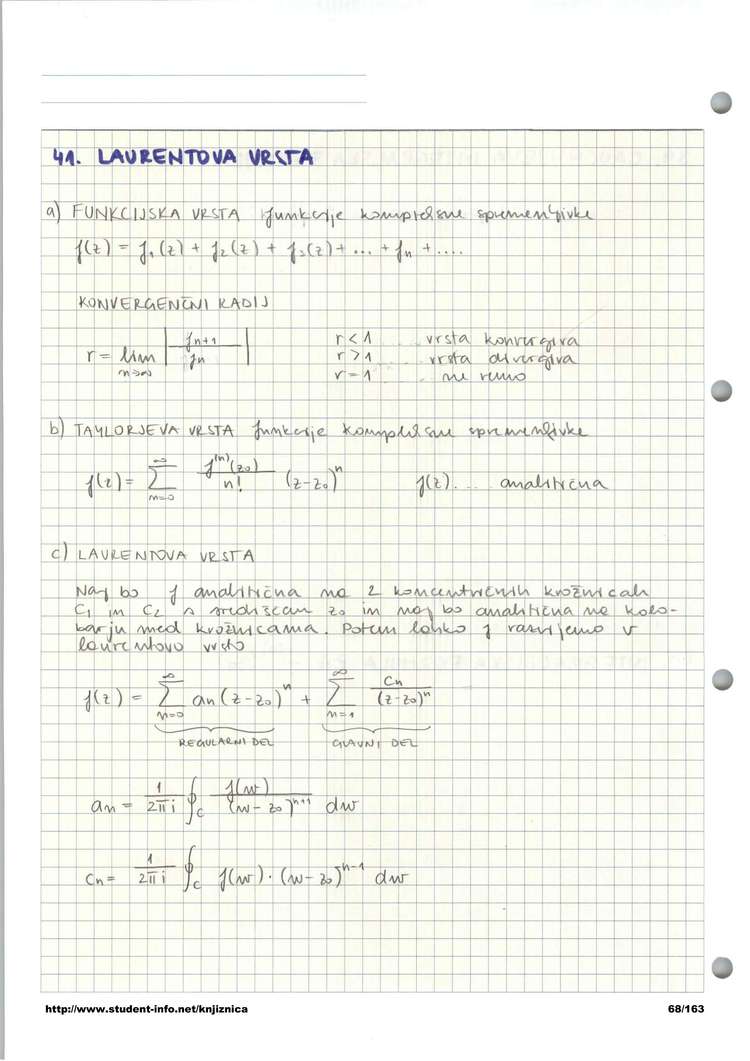 41. LAURENTOVA VRSTA
a) FUNKCIJSKA VRSTA funkcije kompleksne spremenljivke
f(z) = f₁(z) + f₂(z) + f₃(z) + ... + fn + ....
KONVERGENČNI RADIJ
r = lim n→∞ | fn+1 / fn |
r < 1 .... vrsta konvergira
r > 1 .... vrsta divergira
r = 1 .... ne vemo
b) TAYLORJEVA VRSTA funkcije kompleksne spremenljivke
f(z) = ∞ Σ n=0 f⁽ⁿ⁾(z₀) / n! (z-z₀)ⁿ f(z) .... analitična
c) LAURENTOVA VRSTA
Naj bo f analitična na 2 koncentričnih krožnicah
C₁ in C₂ s središčem z₀ in naj bo analitična na kolo-
barju med krožnicama. Potem lahko f razvijemo v
laurentovo vrsto
f(z) = ∞ Σ n=0 an (z-z₀)ⁿ + ∞ Σ n=1 cn / (z-z₀)ⁿ
REGULARNI DEL GLAVNI DEL
an = 1 / 2πi ∮C f(w) / (w-z₀)ⁿ⁺¹ dw
cn = 1 / 2πi ∮C f(w) · (w-z₀)ⁿ⁻¹ dw
http://www.student-info.net/knjiznica 68/163